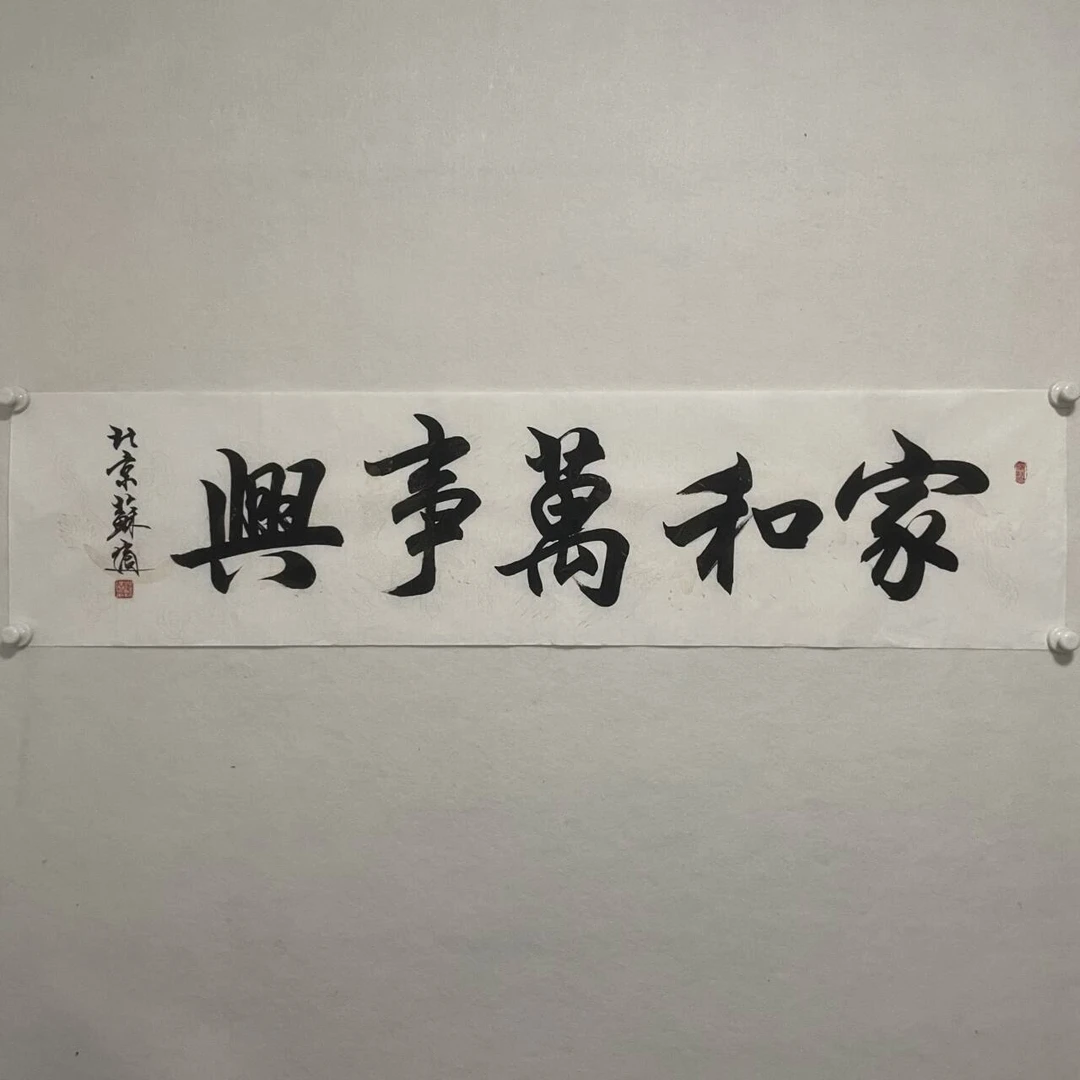 家和萬事興
北京蘇適